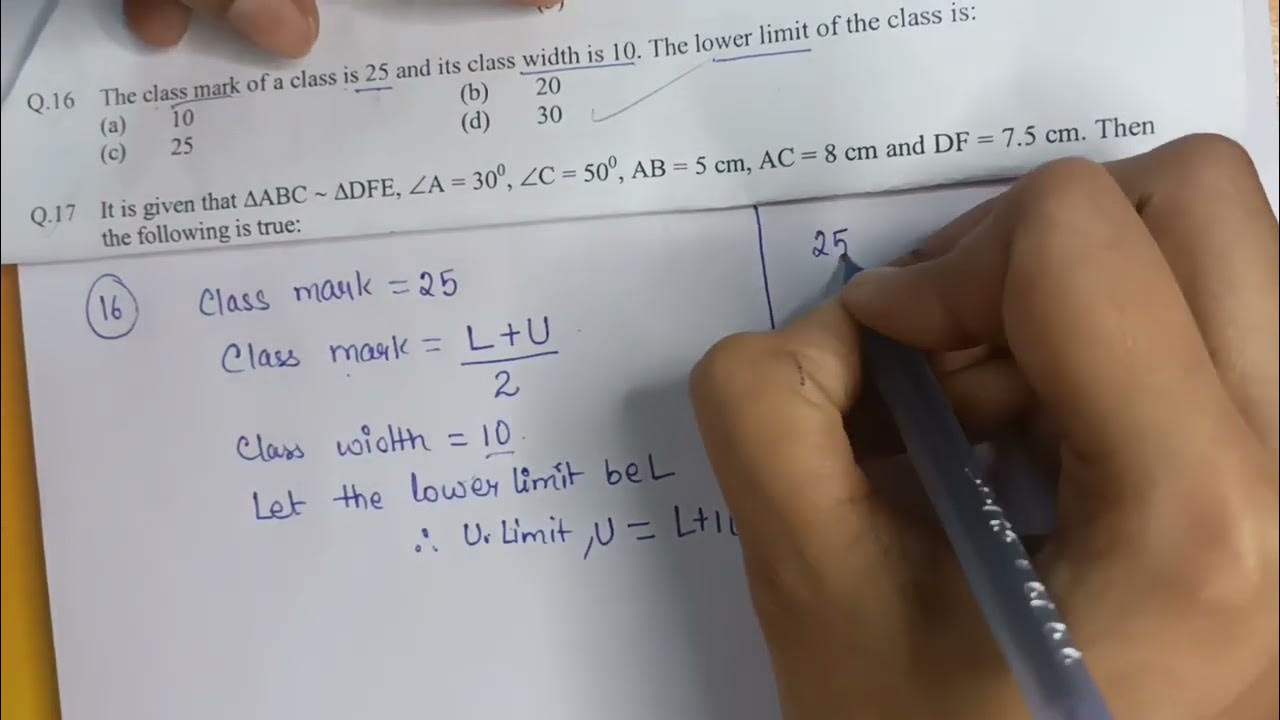 Q.16 The class mark of a class is 25 and its class width is 10. The lower limit of the class is:
(a) 10 (b) 20
(c) 25 (d) 30
Q.17 It is given that ΔABC ~ ΔDFE, ∠A = 30⁰, ∠C = 50⁰, AB = 5 cm, AC = 8 cm and DF = 7.5 cm. Then
the following is true:
16 Class mark = 25
Class mark = L+U
2
Class width = 10.
Let the lower limit be L
∴ U. Limit, U = L+1
25